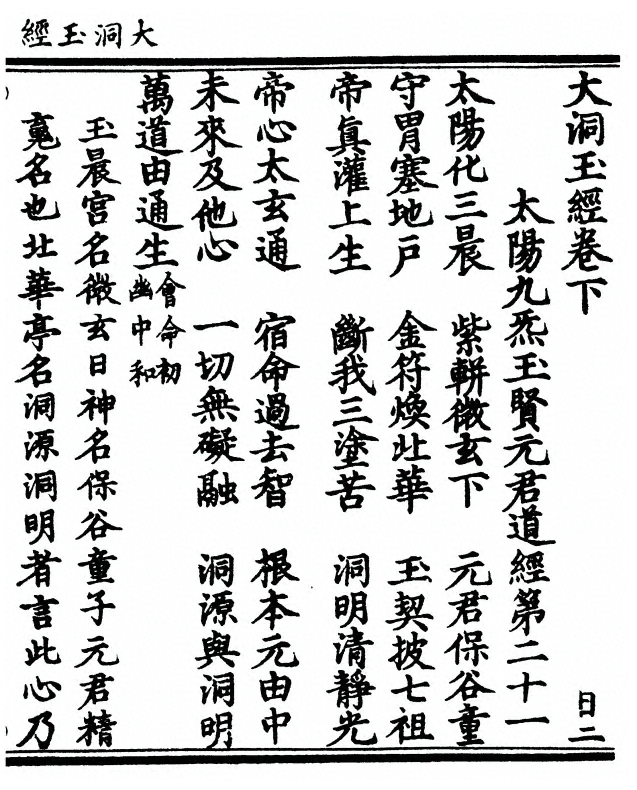 大洞玉經
大洞玉經卷下 日二
太陽九炁玉賢元君道經第二十一
太陽化三晨 紫軿微玄下 元君保谷童
守胃塞地戶 金符煥北華 玉契披七祖
帝真灌上生 斷我三塗苦 洞明清靜光
帝心太玄通 宿命過去智 根本元由中
未來及他心 一切無礙融 洞源與洞明
萬道由通生 會命初幽中和
玉晨宮名微玄日神名保谷童子元君精
䰟名也北華亭名洞源洞明者言此心乃